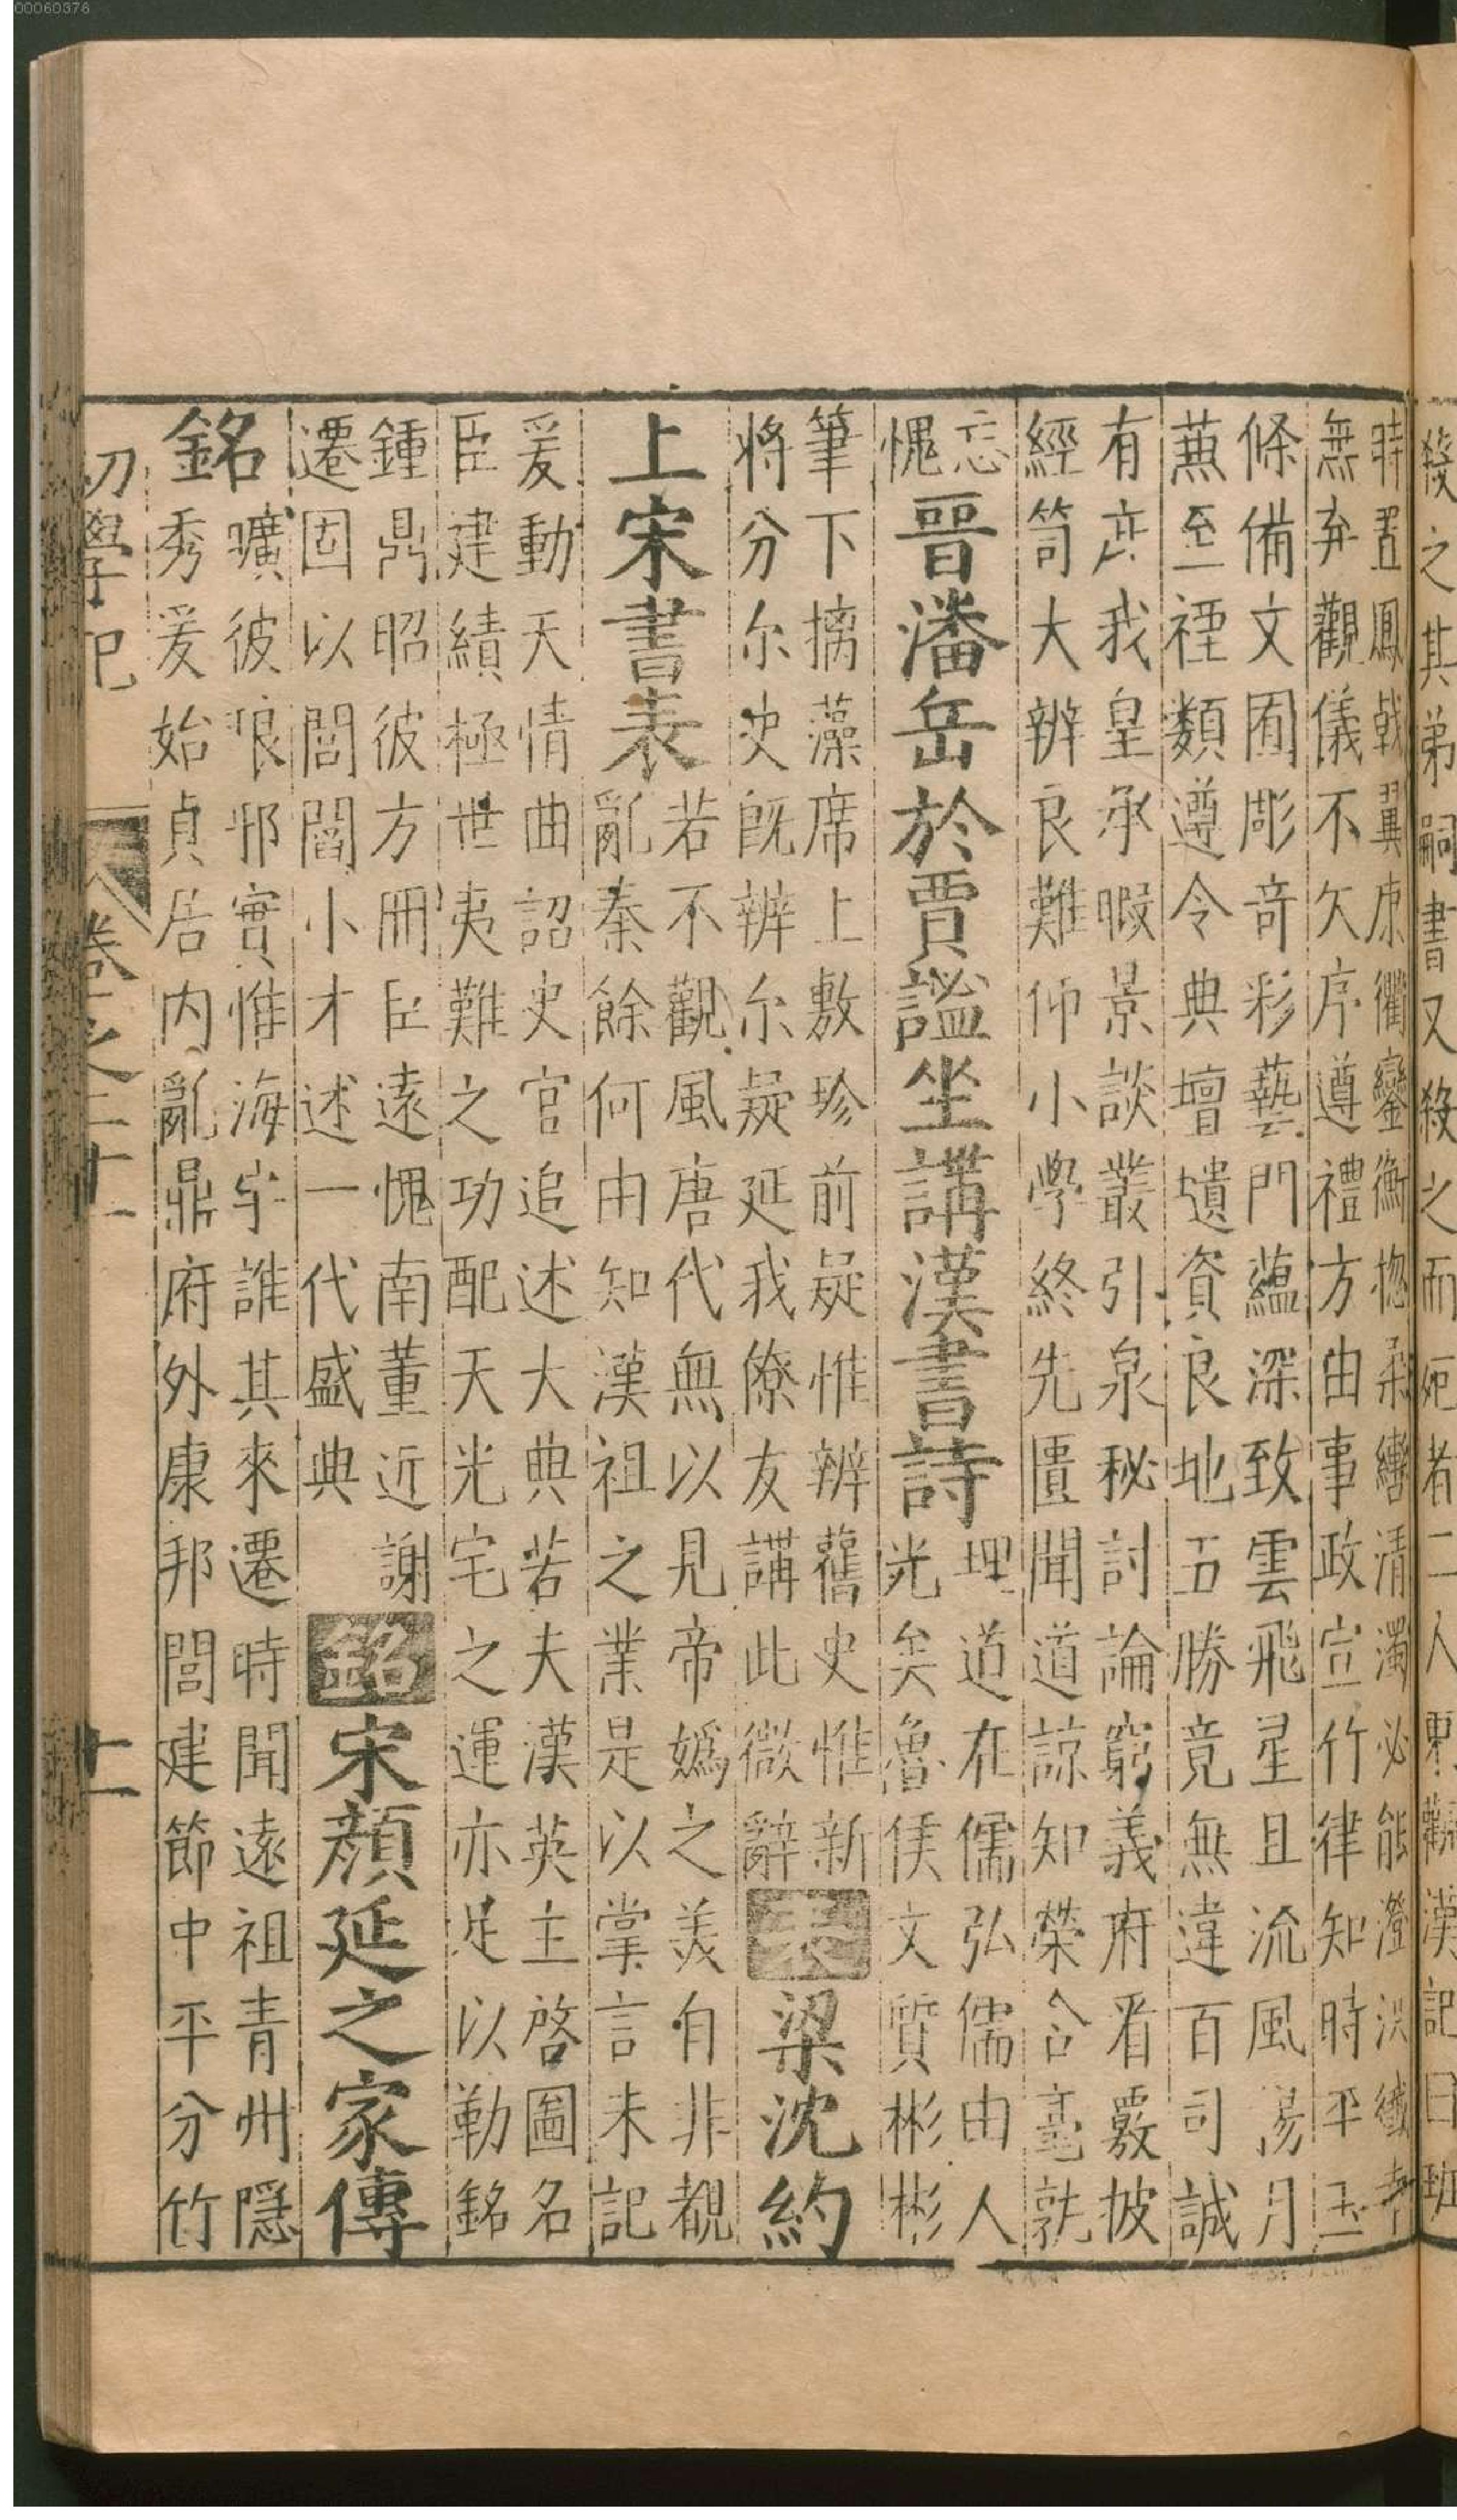 00060376
殺之其弟嗣書又殺之而死者二人東觀漢記曰班
時置鳳戟翼康衢鑾衡揔朶轡清濁必能澄洪纖幸
無弃觀儀不欠序遵禮方由事政宣竹律知時平玉
條備文囿彫奇彩藝門蘊深致雲飛星且流風湯月
蕪至禋類遵令典壇壝資良地五勝竟無違百司誠
有庶我皇承暇景談叢引泉秘討論窮義府看覈披
經笥大辨良難仰小學終先匱聞道諒知榮含毫孰
忘
愧
晉潘岳於賈謐坐講漢書詩
理道在儒弘儒由人
光矣魯侯文質彬彬
筆下摛藻席上敷珍前疑惟辨舊史惟新
將分尒史旣辨尒疑延我僚友講此微辭
表梁沈約
上宋書表
若不觀風唐代無以見帝嬀之美自非覩
亂秦餘何由知漢祖之業是以掌言未記
爰動天情曲詔史官追述大典若夫漢英主啓圖名
臣建績極世夷難之功配天光宅之運亦足以勒銘
鍾鼎昭彼方冊臣遠愧南董近謝
遷固以閭閻小才述一代盛典
銘宋顔延之家傳
銘
曠彼琅邪實惟海宇誰其來遷時聞遠祖青州隱
秀爰始貞居内亂鼎府外康邦閭建節中平分竹
初學記
卷之二十一
十一